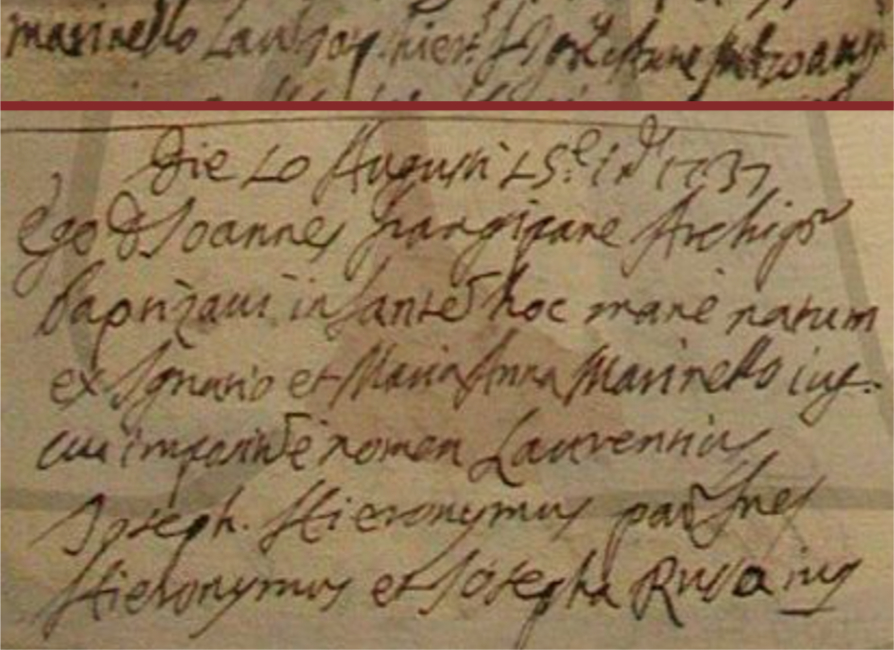 marinello
Die 20 Augusti 15e Ind 1737
Ego D Joannes Frangipane Archipr
baptizavi infante hoc mane natum
ex Ignatio et Maria Anna Marinello iug.
cui impositu e nomen Laurentius
Joseph. Hieronymus patrines
Hieronymus et Josepha Russa iug